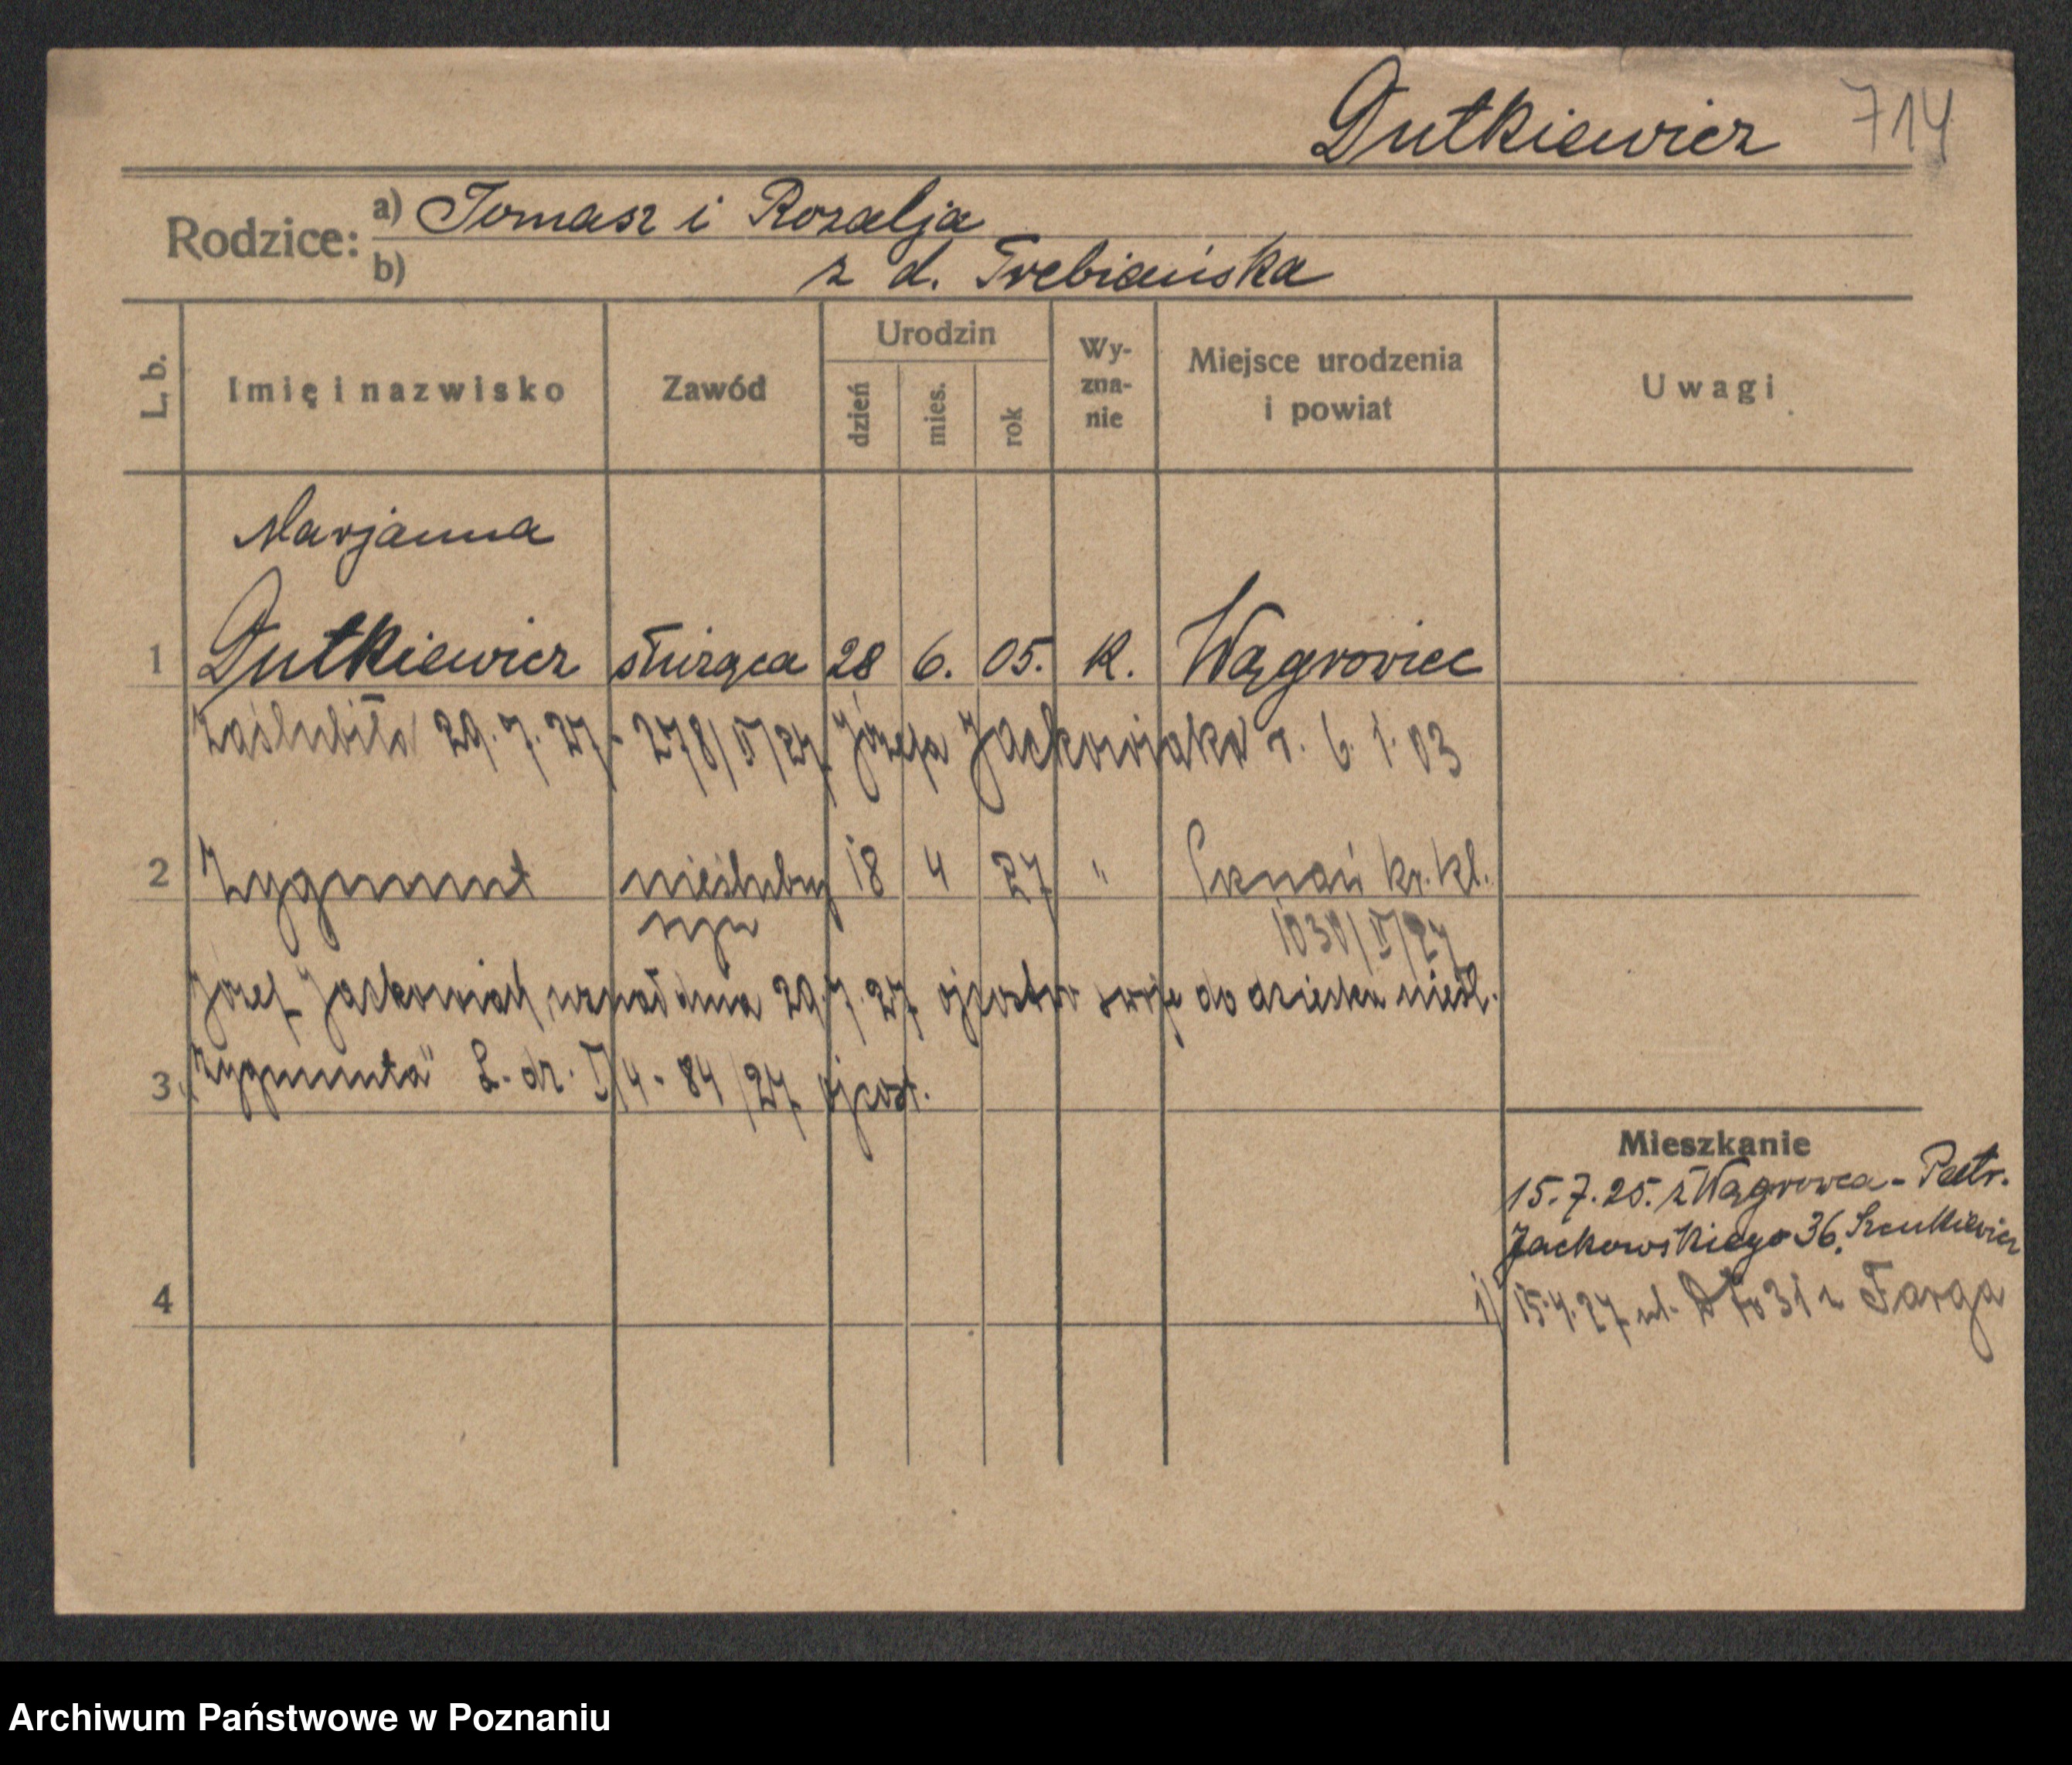 Dutkiewicz 714
Rodzice: a) Tomasz i Rozalja
b) z d. Trebiańska
L. b. Imię i nazwisko Zawód Urodzin dzień mies. rok Wyznanie Miejsce urodzenia i powiat Uwagi
Marjanna
1 Dutkiewicz służąca 28 6. 05. k. Wągrowiec
Zaślubiła 29.7.27 - 278/II/27 Józefa Jackowiaka r. 6.1.03
2 Zygmunt nieślubny 18 4 27 " Poznań kr. kl.
syn 1030/II/27
Józef Jackowiak uznał dnia 29.7.27 ojcostwo swoje do dziecka nieśl.
3 "Zygmunta" L. dz. II/4 - 84/27 ojcost.
Mieszkanie
15.7.25. z Wągrowca - Patr.
Jackowskiego 36.
4 1) 15.4.27 ul. 31 z Farga
Archiwum Państwowe w Poznaniu